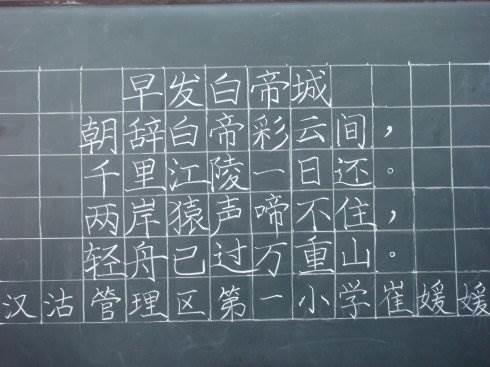 早发白帝城
朝辞白帝彩云间，
千里江陵一日还。
两岸猿声啼不住，
轻舟已过万重山。
汉沽管理区第一小学崔媛媛